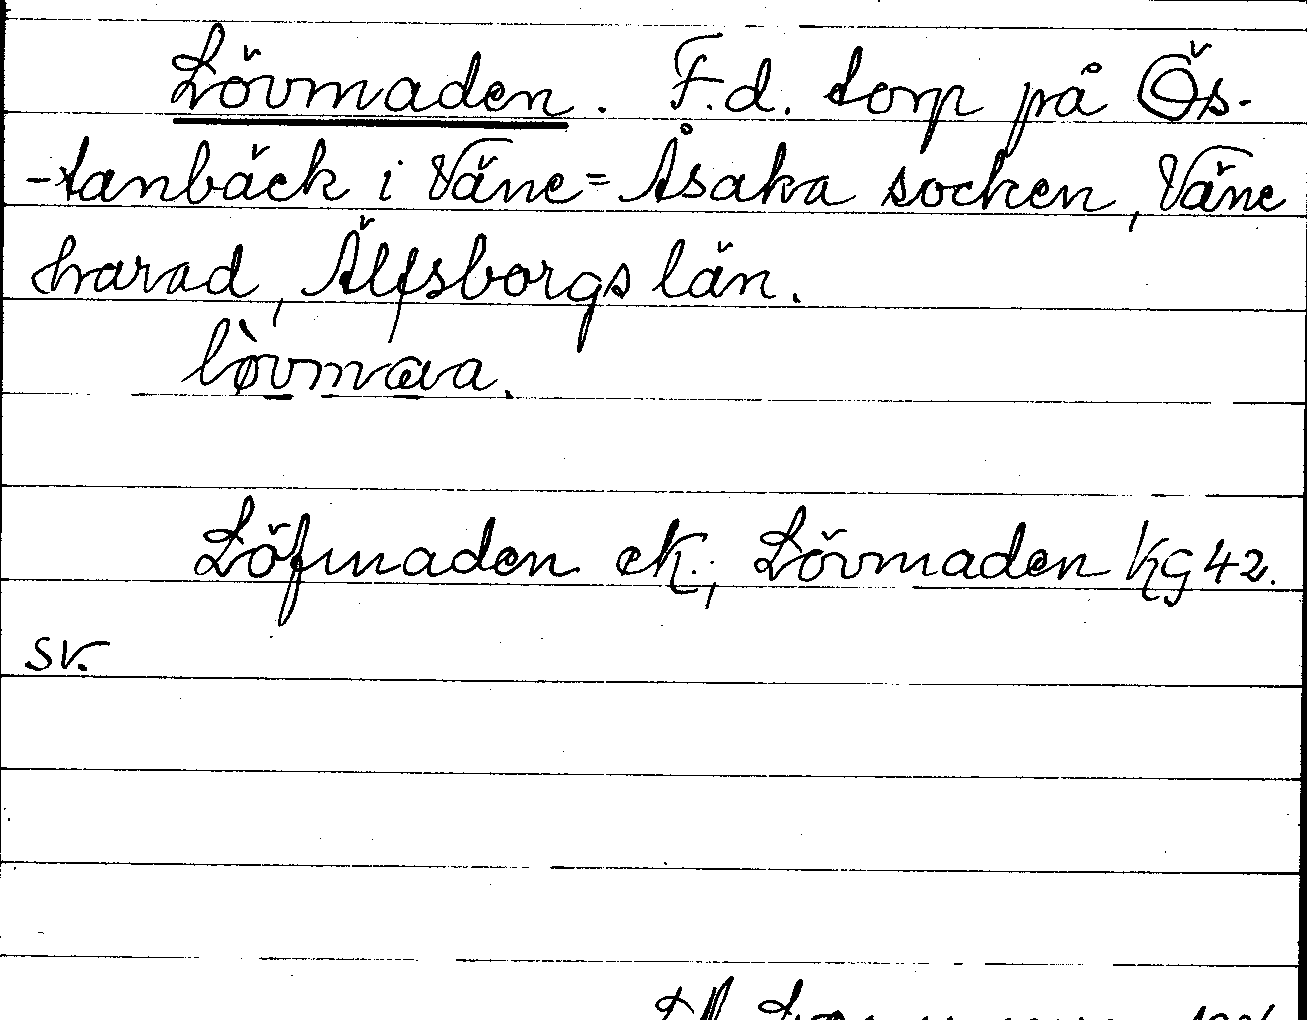 Lövmaden. F.d. torp på Ös-
-tanbäck i Väne=Åsaka socken, Väne
harad, Älfsborgs län.
lòvmaa.
Löfmaden ek.; Lövmaden KG 42.
sv.